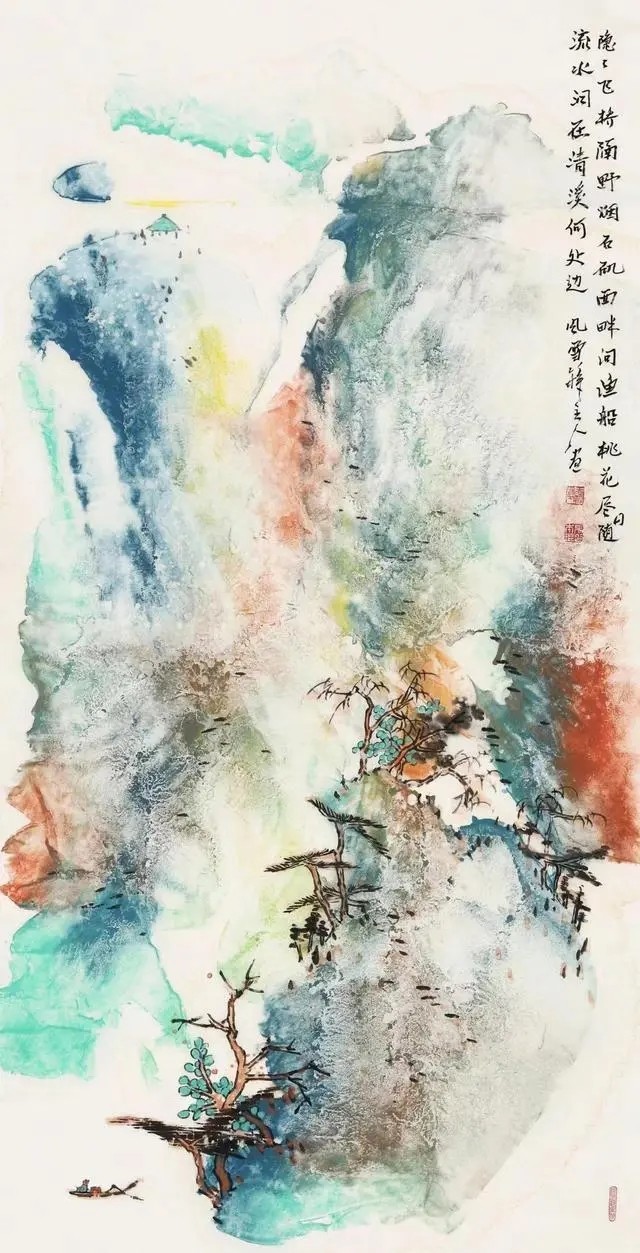 隐〻飞桥隔野烟石矶西畔问渔船桃花尽日随
流水洞在清溪何处边 风雪主人画